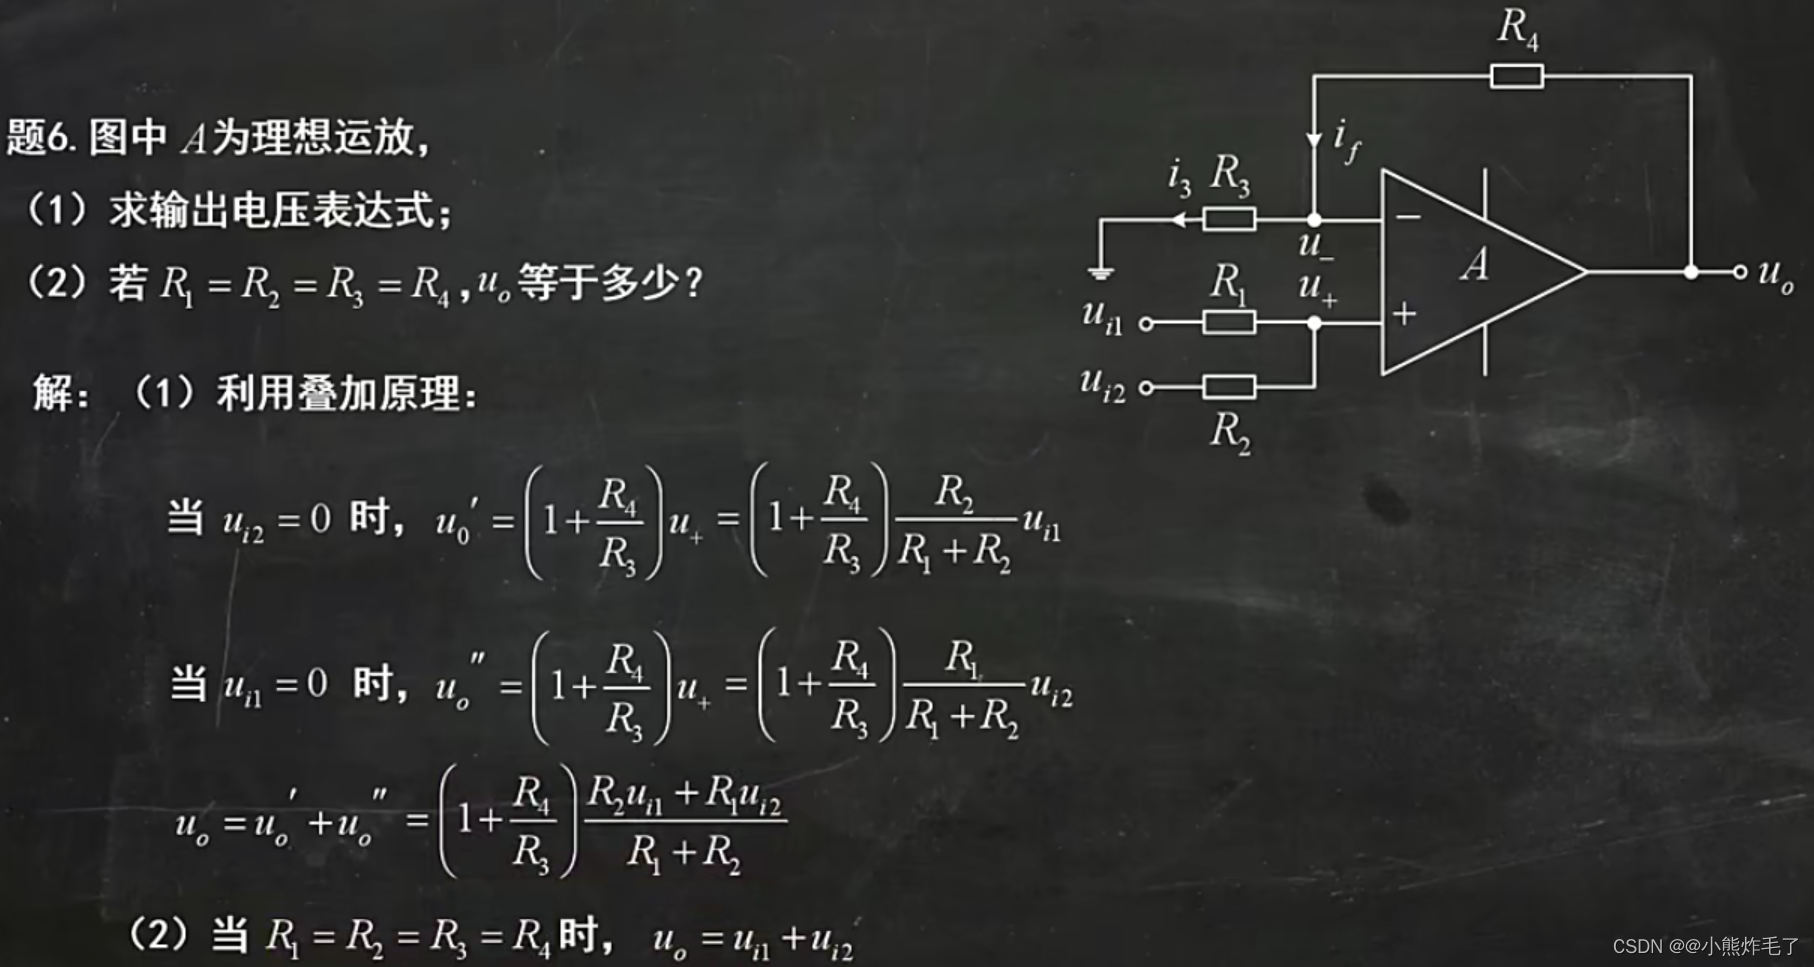 题6.图中 A为理想运放，
（1）求输出电压表达式；
（2）若 R₁ = R₂ = R₃ = R₄ , uₒ 等于多少？
R₄
i_f
i₃ R₃
−
u₋
A
uₒ
R₁ u₊
u_{i1}
+
u_{i2}
R₂
解：（1）利用叠加原理：
当 u_{i2} = 0 时，u₀′ = (1+R₄/R₃)u₊ = (1+R₄/R₃) R₂/(R₁+R₂) u_{i1}
当 u_{i1} = 0 时，uₒ″ = (1+R₄/R₃)u₊ = (1+R₄/R₃) R₁/(R₁+R₂) u_{i2}
uₒ = uₒ′ + uₒ″ = (1+R₄/R₃) (R₂u_{i1} + R₁u_{i2})/(R₁+R₂)
（2）当 R₁ = R₂ = R₃ = R₄ 时， uₒ = u_{i1} + u_{i2}
CSDN @@小熊炸毛了